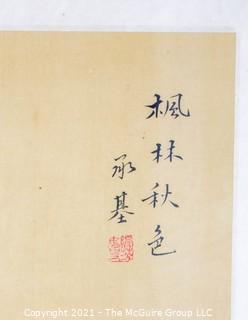 楓林秋色
承基
Copyright 2021 - The McGuire Group, LLC